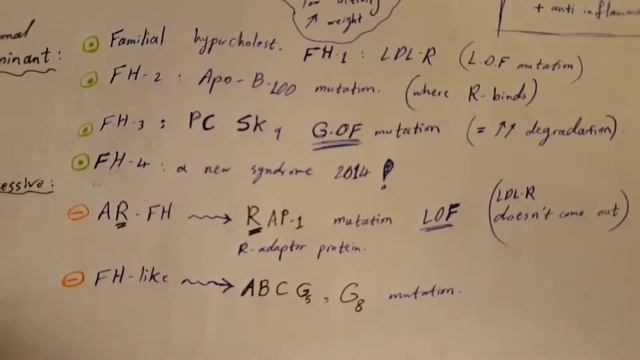 low activity
↑ weight
+ anti inflamm
minant:
Familial hypercholest. FH-1 : LDL-R (L.OF mutation)
FH-2 : Apo-B-100 mutation. (where R-binds)
FH-3 : PC SK9 G.OF mutation (= ↑↑ degradation).
FH-4 : a new syndrome 2014 !
essive:
AR-FH → RAP-1 mutation LOF (LDL-R doesn't come out)
R-adaptor protein.
FH-like → ABC G5, G8 mutation.